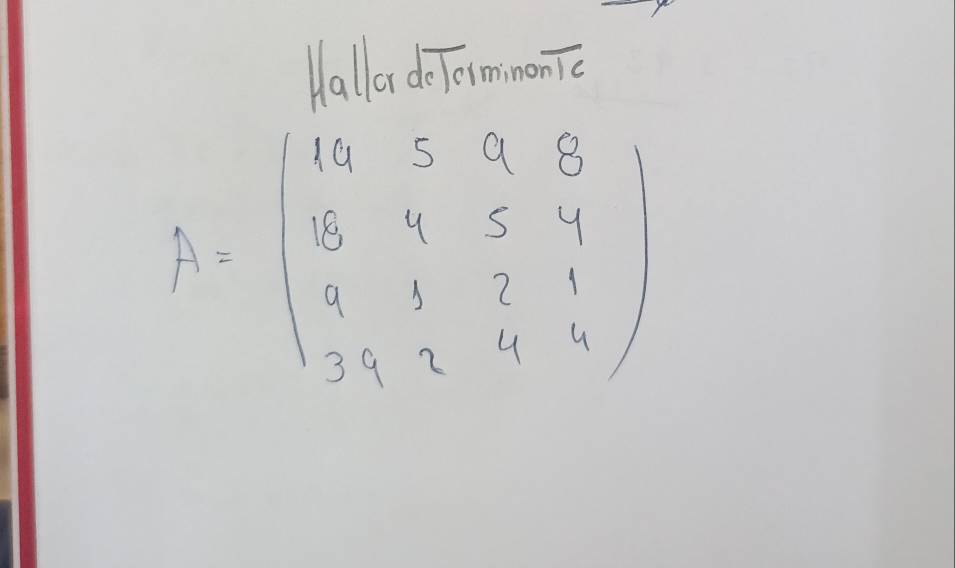 Hallar determinante
A = ( 19 5 9 8
18 4 5 4
9 1 2 1
39 2 4 4 )